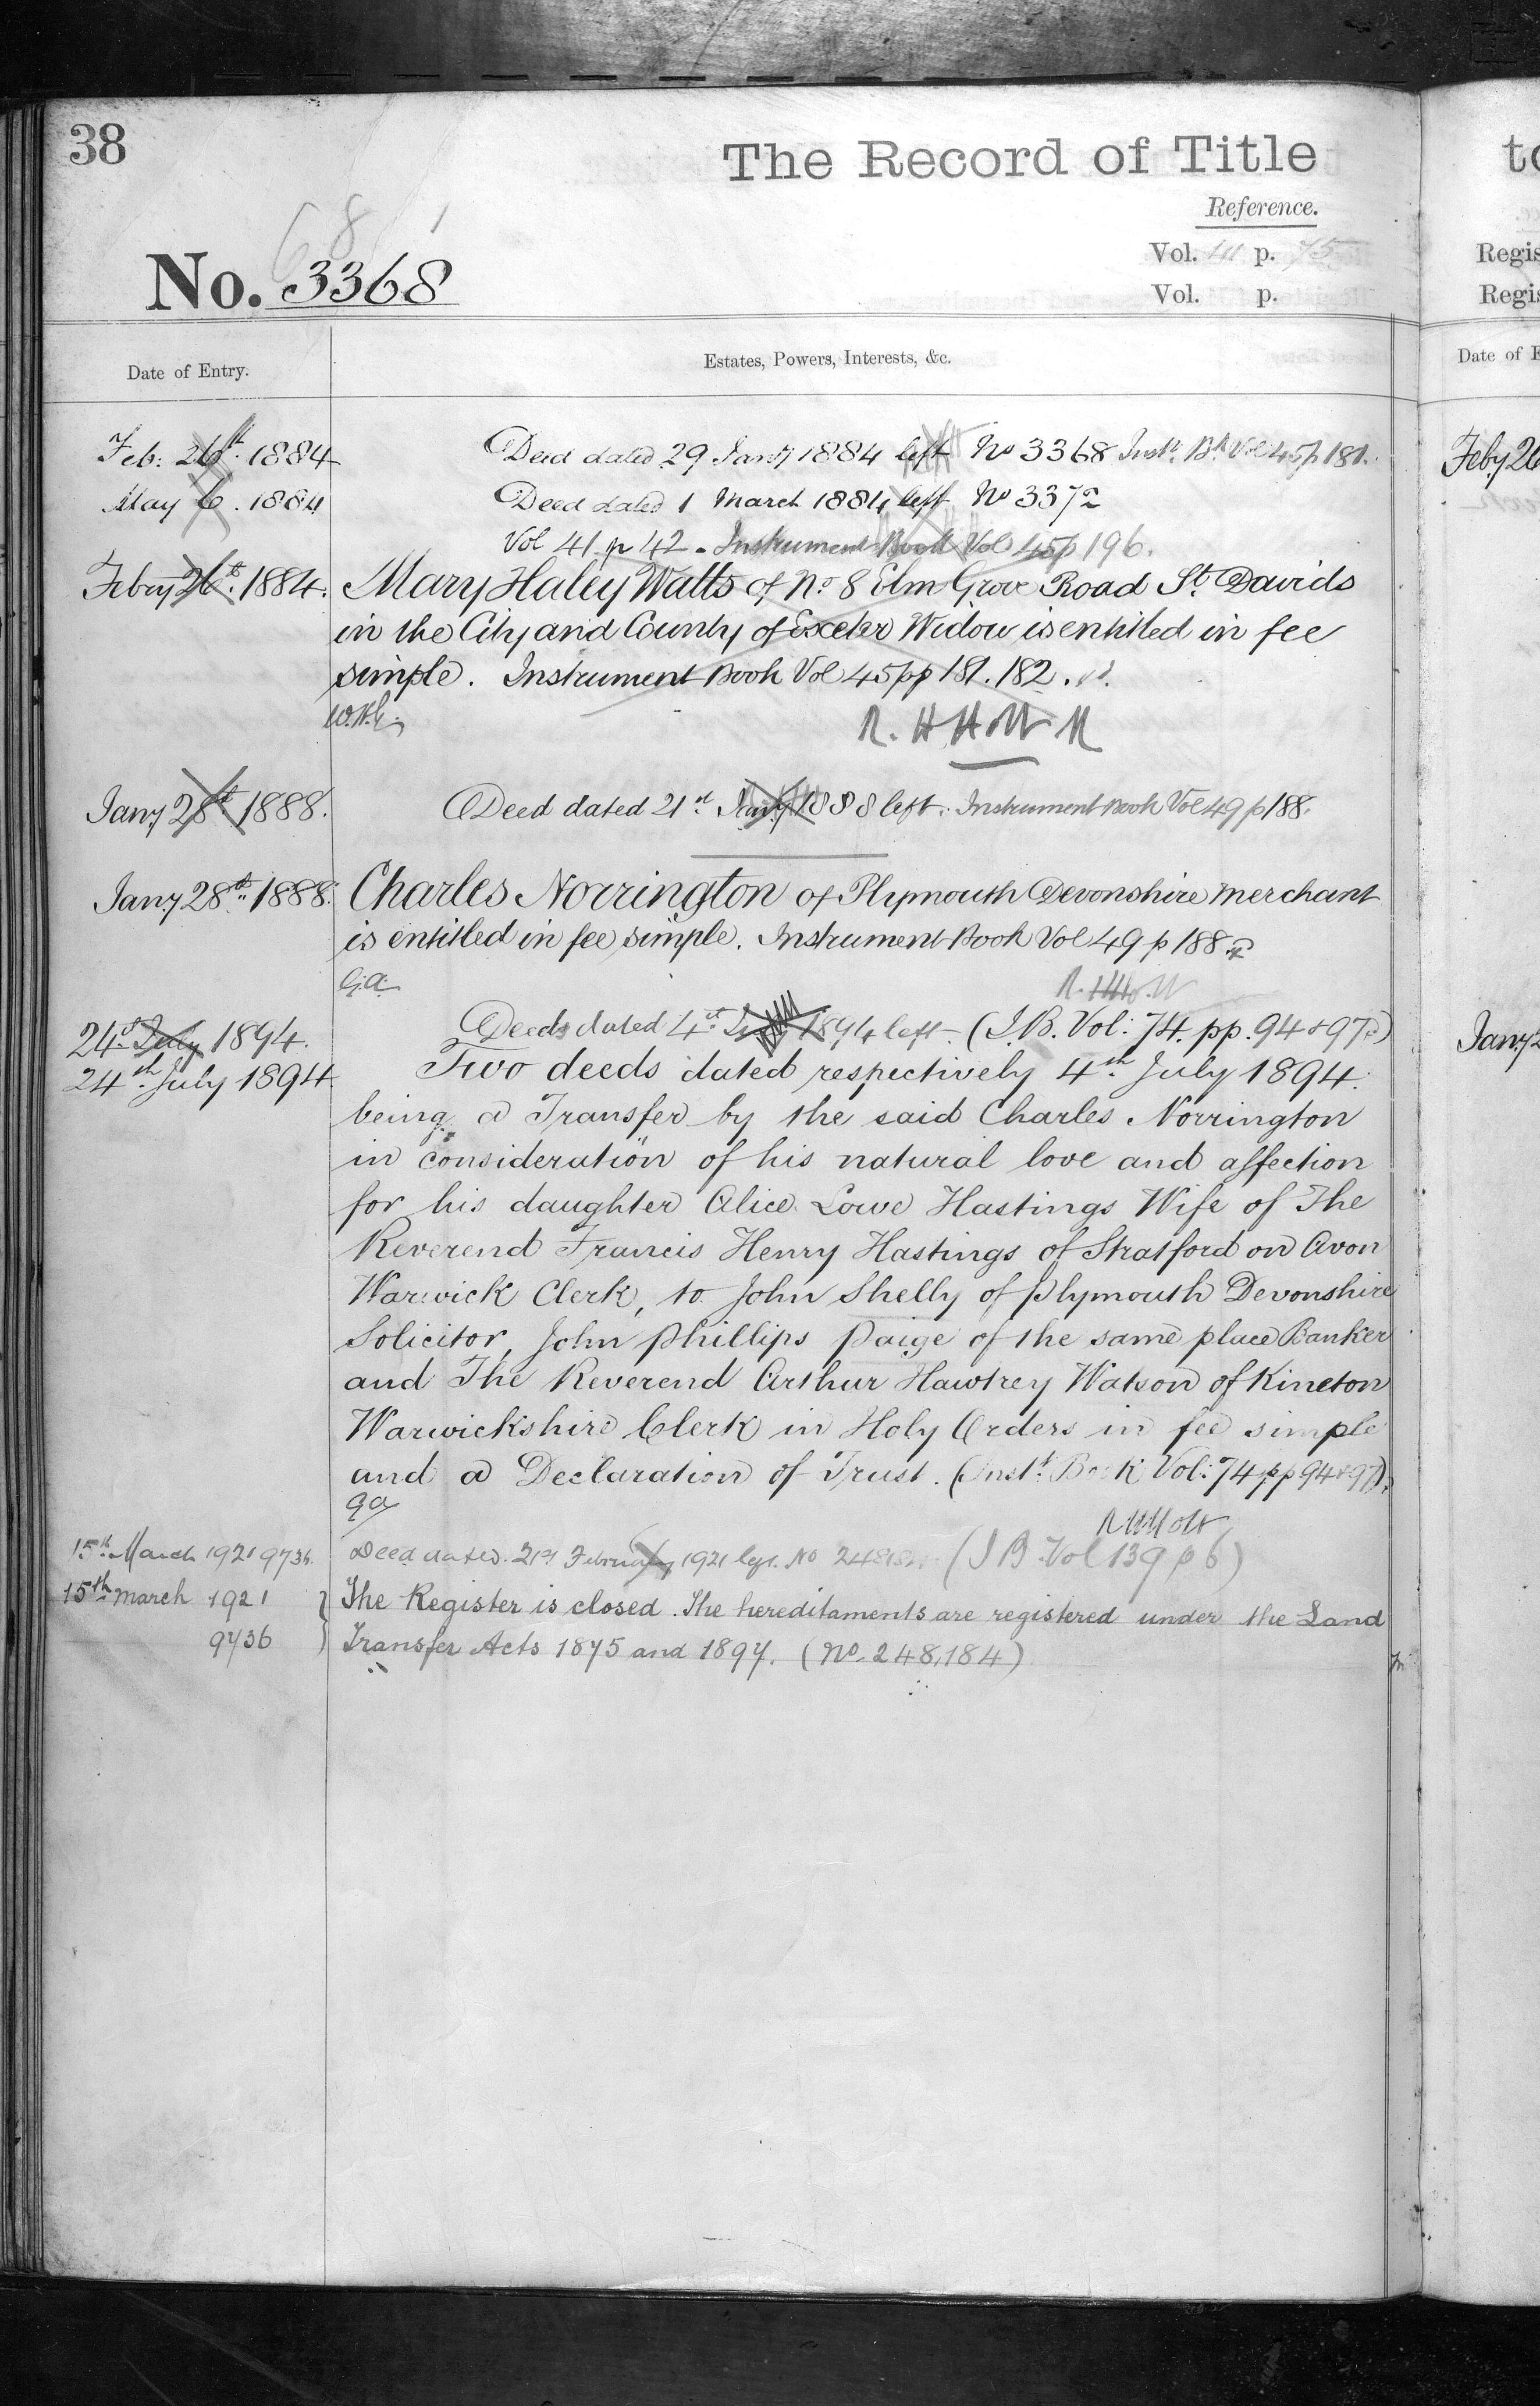 38
The Record of Title
Reference.
Vol. 41 p. 75
Vol. p.
No. 3368
Date of Entry.
Estates, Powers, Interests, &c.
Feb: 26th. 1884 Deed dated 29 Jany 1884 left No 3368 Instt. Bk Vol 45 p 181.
May 6. 1884 Deed dated 1 March 1884 left No 3372
Vol 41 p 42 - Instrument Book Vol 45 p 196.
Febry 26th. 1884. Mary Haley Watts of No. 8 Elm Grove Road St. Davids
in the City and County of Exeter Widow is entitled in fee
simple. Instrument Book Vol 45 pp 181. 182.
R. H Holt
Jany 28th 1888. Deed dated 21st Jany 1888 left. Instrument Book Vol 49 p 188.
Jany 28th. 1888. Charles Norrington of Plymouth Devonshire Merchant
is entitled in fee simple. Instrument Book Vol 49 p 188.
G.A.
R. H Holt
24th July 1894. Deeds dated 4th July 1894 left - (I.B. Vol: 74. pp. 94 & 97.)
24th July 1894 Two deeds dated respectively 4th July 1894.
being a Transfer by the said Charles Norrington
in consideration of his natural love and affection
for his daughter Alice Lowe Hastings Wife of The
Reverend Francis Henry Hastings of Stratford on Avon
Warwick Clerk, to John Shelly of Plymouth Devonshire
Solicitor, John Phillips Paige of the same place Banker
and The Reverend Arthur Hawtrey Watson of Kineton
Warwickshire Clerk in Holy Orders in fee simple
and a Declaration of Trust. (Instt. Book Vol: 74 pp 94 & 97).
GA
R H Holt
15th March 1921 9736. Deed dated 21st February 1921 No 248184 (I B Vol 139 p 6)
15th March 1921 } The Register is closed. The hereditaments are registered under the Land
9736 } Transfer Acts 1875 and 1897. (No. 248,184)
to
Regis
Regis
Date of E
Feby 26
Jany 2